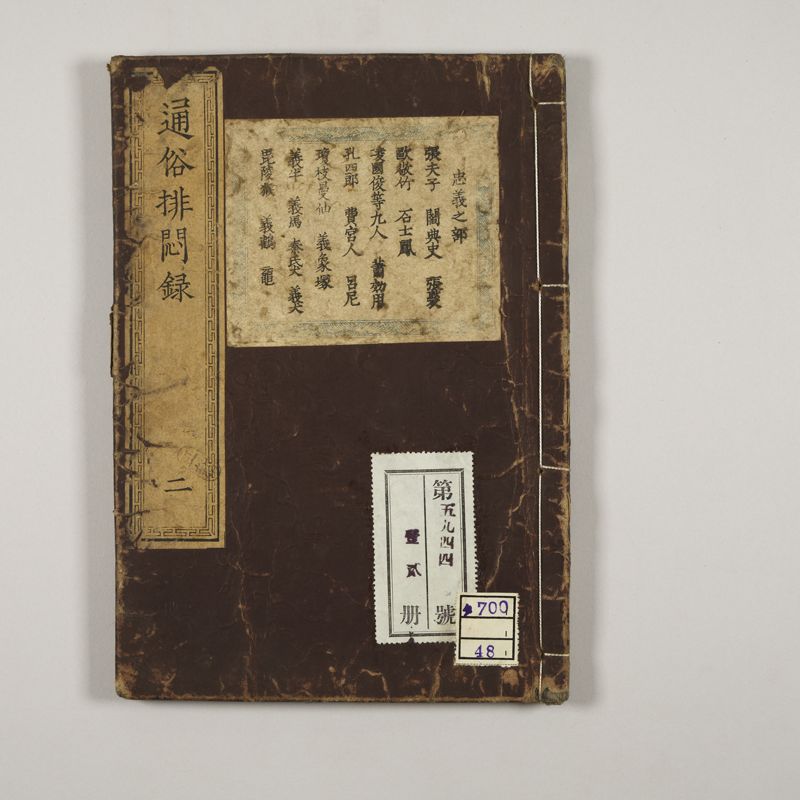 通俗排悶録
二
忠義之部
張夫子 閻典史 張羹
歐敬竹 石士鳳
凌國俊等九人 蕭効用
孔四郎 費宮人 呂尼
瓊枝曼仙 義象塚
義牛 義馬 秦氏犬 義犬
毘陵猴 義鸛 黿
第五九四四號
壹貳册
700
48